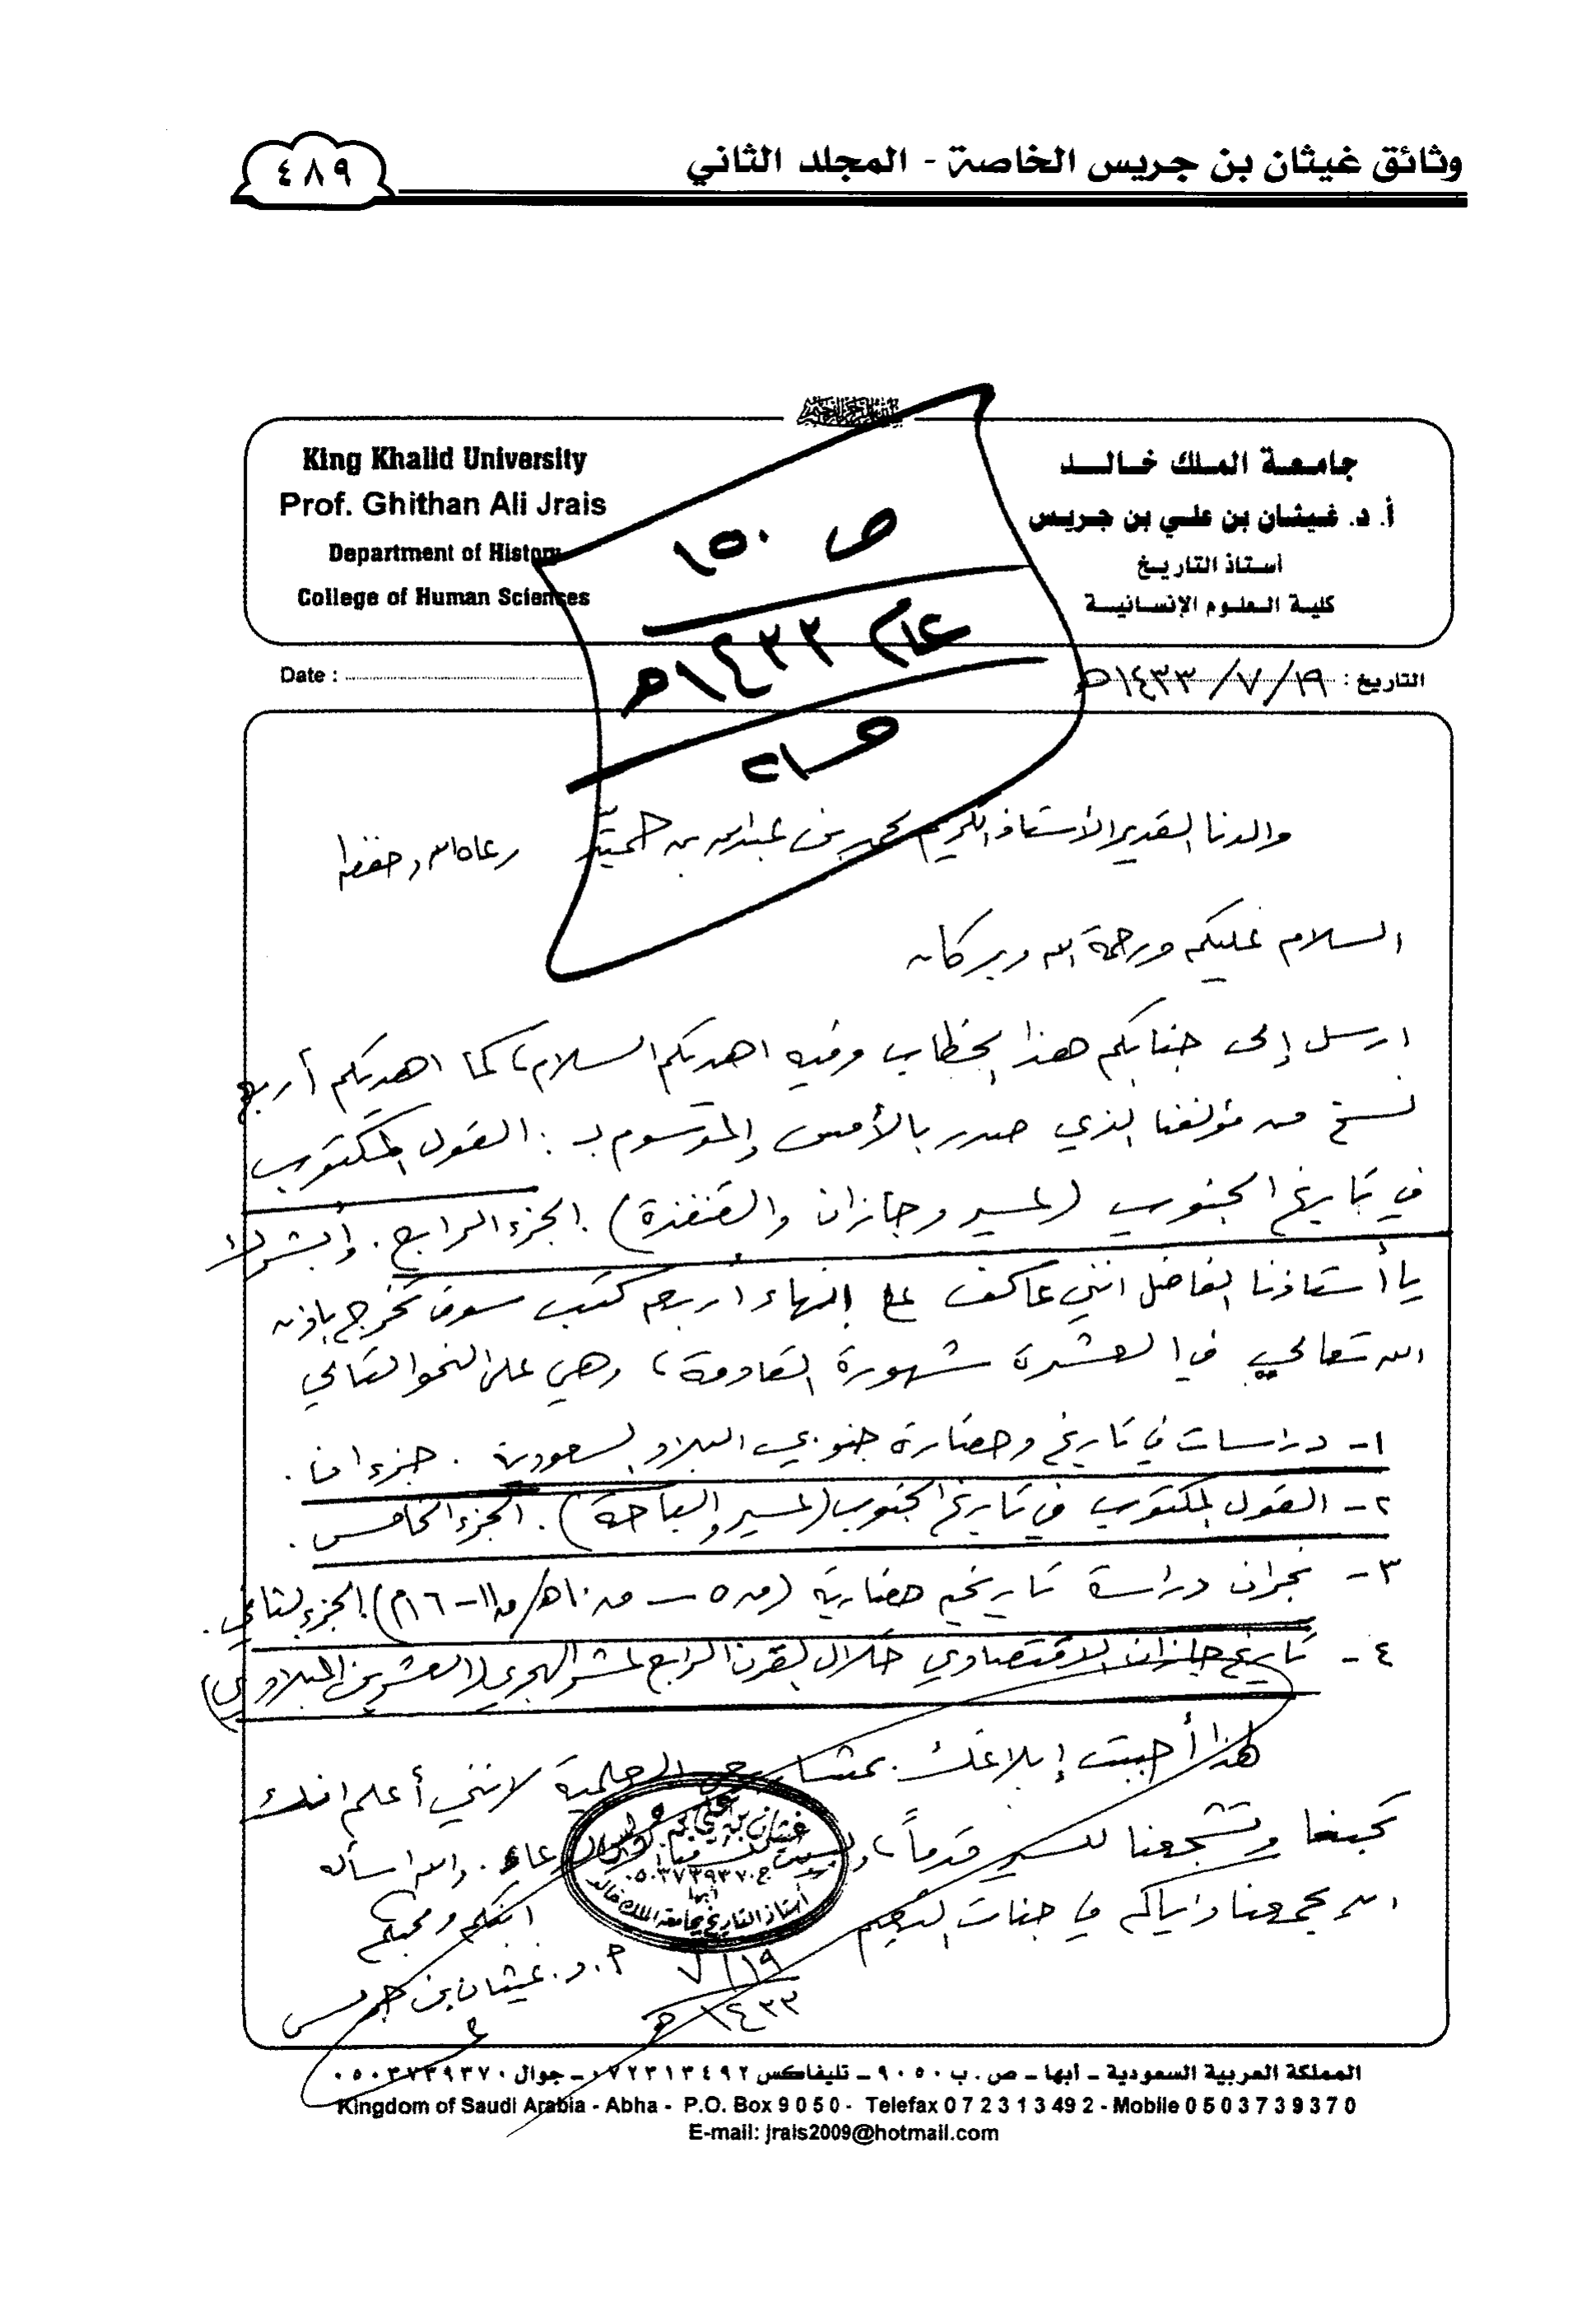 وثائق غيثان بن جريس الخاصة - المجلد الثاني
٤٨٩
King Khalid University
Prof. Ghithan Ali Jrais
Department of History
College of Human Sciences
جامعة الملك خالد
أ. د. غيثان بن علي بن جريس
أستاذ التاريخ
كلية العلوم الإنسانية
ص ١٥٠
عام ١٤٣٣هـ
Date :
التاريخ : ١٩/ ٧/ ١٤٣٣هـ
والدنا القدير الأستاذ الكريم محمد بن عبدالله بن حميّد رعاه الله وحفظه
السلام عليكم ورحمة الله وبركاته
ارسل إلى جنابكم هذا الخطاب وفيه اهديكم السلام، كما اهديكم أربع
نسخ من مؤلفنا الذي صدر بالأمس والموسوم بـ : القول المكتوب
في تاريخ الجنوب (عسير وجازان والقنفذة). الجزء الرابع. وأبشرك
يا أستاذنا الفاضل انني عاكف على إنهاء أربعة كتب سوف تخرج بإذن
الله تعالى في العشرة شهورة القادمة، وهي على النحو التالي
١- دراسات في تاريخ وحضارة جنوبي البلاد السعودية. جزءان.
٢- القول المكتوب في تاريخ الجنوب (عسير والباحة). الجزء الخامس.
٣- نجران دراسة تاريخية حضارية (ق٥ - ق١٠هـ/ق١١-١٦م). الجزء الثاني.
٤- تاريخ جازان الاقتصادي خلال القرن الرابع عشر الهجري (العشرين الميلادي)
هذا أحببت إبلاغك بمشاريعي العلمية لانني أعلم انك
تحبنا وتشجعنا للسير قدماً، الدعاء. والله اسأله
ان يجمعنا واياكم في جنات النعيم
ابنكم ومحبكم
أ. د. غيثان بن جريس
١٩/ ٧
١٤٣٣هـ
غيثان بن علي بن جريس
ج ٠٥٠٣٧٣٩٣٧٠
أبها
أستاذ التاريخ بجامعة الملك خالد
المملكة العربية السعودية - أبها - ص. ب ٩٠٥٠ - تليفاكس ٠٧٢٣١٣٤٩٢ - جوال ٠٥٠٣٧٣٩٣٧٠
Kingdom of Saudi Arabia - Abha - P.O. Box 9 0 5 0 - Telefax 0 7 2 3 1 3 4 9 2 - Mobile 0 5 0 3 7 3 9 3 7 0
E-mail: jrais2009@hotmail.com